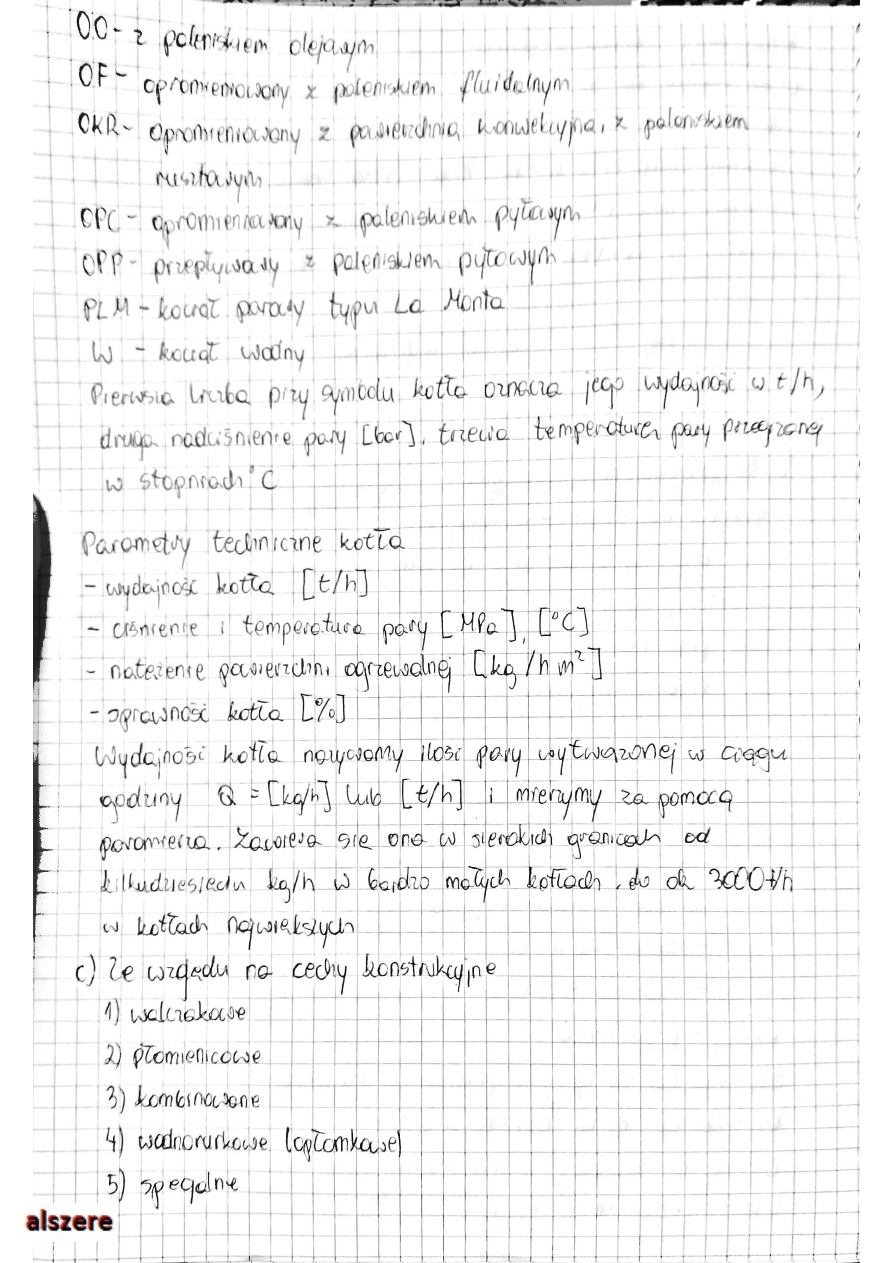 OO- z paleniskiem olejowym
OF- opromieniowany z paleniskiem fluidalnym
OKR- opromieniowany z powierzchnią konwekcyjną, z paleniskiem
rusztowym
OPC- opromieniowany z paleniskiem pyłowym
OPP- przepływowy z paleniskiem pyłowym
PLM - kocioł parowy typu La Monta
W - kocioł wodny
Pierwsza liczba przy symbolu kotła oznacza jego wydajność w t/h,
druga nadciśnienie pary [bar], trzecia temperaturę pary przegrzanej
w stopniach °C
Parametry techniczne kotła
- wydajność kotła [t/h]
- ciśnienie i temperatura pary [MPa], [°C]
- natężenie powierzchni ogrzewalnej [kg/h m²]
- sprawność kotła [%]
Wydajność kotła nazywamy ilość pary wytwarzonej w ciągu
godziny Q = [kg/h] lub [t/h] i mierzymy za pomocą
paromierza. Zawiera się ona w szerokich granicach od
kilkudziesięciu kg/h w bardzo małych kotłach, do ok 3000 t/h
w kotłach największych
c) Ze względu na cechy konstrukcyjne
1) walczakowe
2) płomienicowe
3) kombinowane
4) wodnorurkowe (opłomkowe)
5) specjalne
alszere